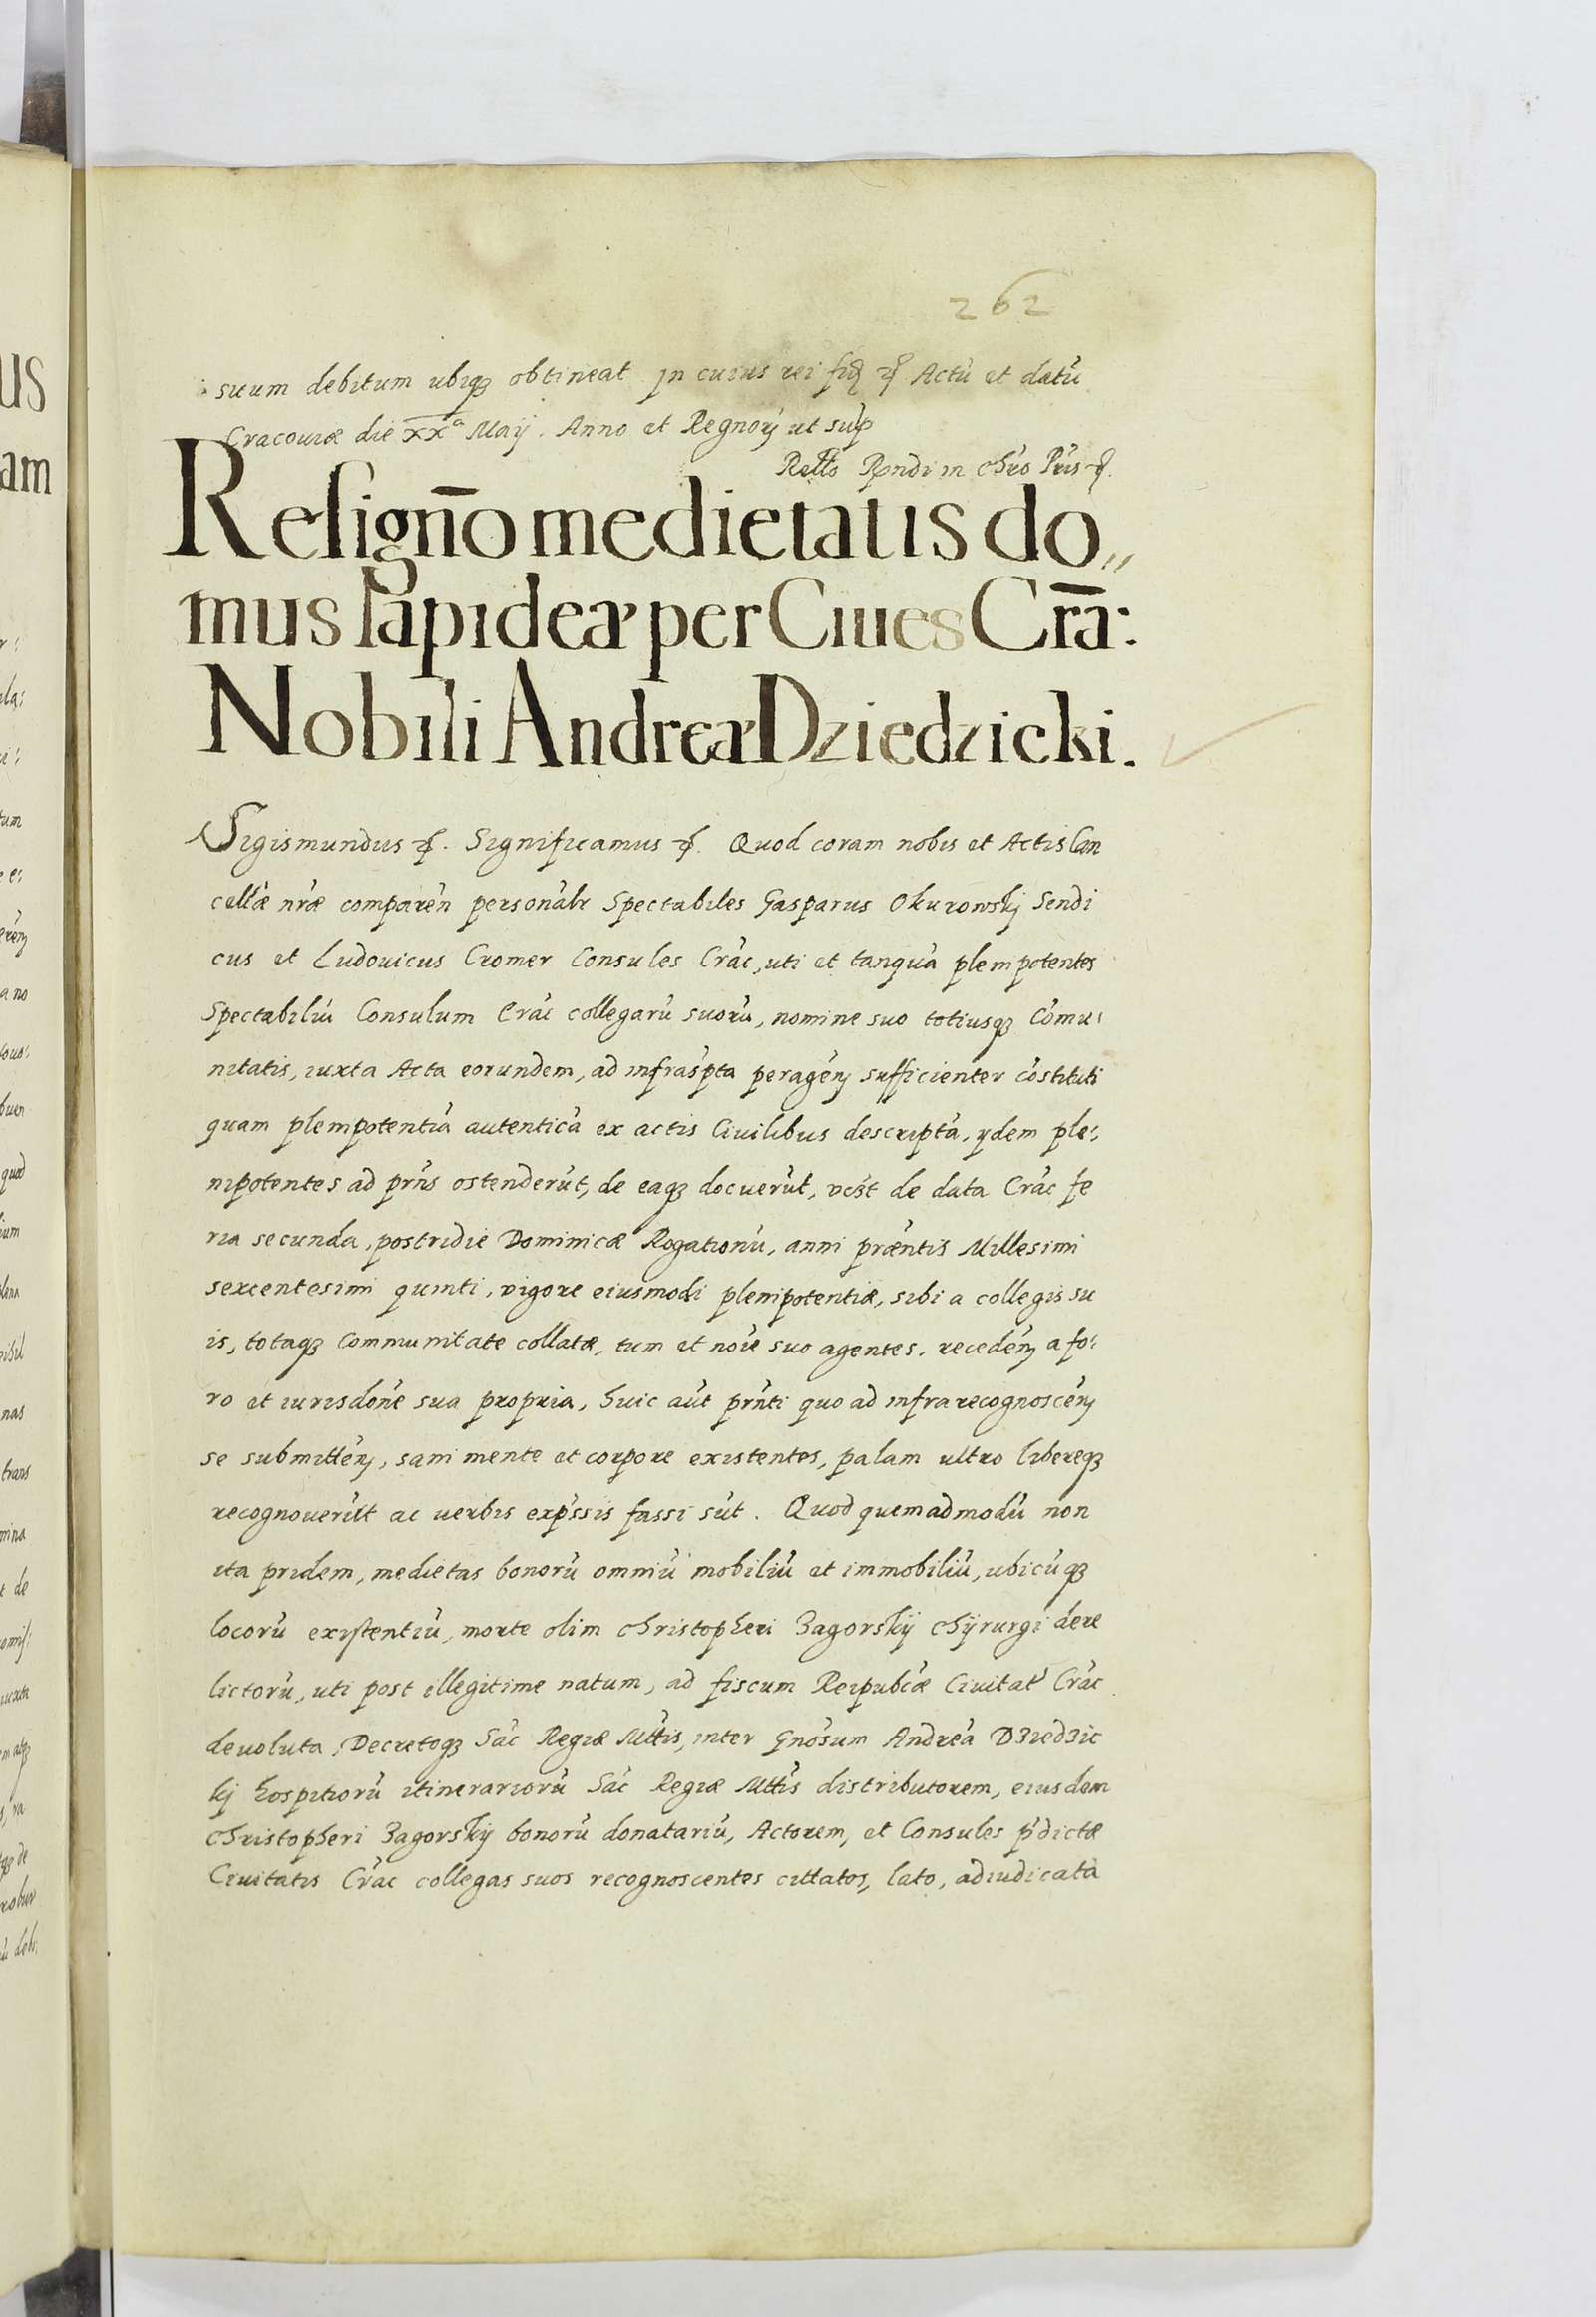 262
suum debitum ubiq₃ obtineat In cuius rei fid ꝛc Actū et datū
Cracoviæ die XXª Maij. Anno et Regnorꝫ ut sup
Rello Rndi in Chro Pris ꝛc.
Resigno̅ medietatis do„
mus lapideæ per Ciues Cra̅:
Nobili Andreæ Dziedzicki.
Sigismundus ꝛc. Significamus ꝛc. Quod coram nobis et Actis Can
cellæ nræ comparen personalr Spectabiles Gasparus Okurowskij Sendi
cus et Ludouicus Cromer Consules Crac, uti et tanquā plenipotentes
Spectabiliū Consulum Crac collegarū suorū, nomine suo totiusq₃ Comu:
nitatis, iuxta Acta eorundem, ad infraspta peragenꝫ sufficienter costituti
quam plenipotentiā autenticā ex actis Ciuilibus descriptā, ydem ple:,
nipotentes ad prns ostenderūt, de eaq₃ docuerūt, vcꝫt de data Crac fe
ria secunda, postridie Dominicæ Rogationū, anni præntis Millesimi
sexcentesimi quinti, vigore eiusmodi plenipotentiæ, sibi a collegis su
is, totaq₃ Communitate collatæ, tum et noīe suo agentes, recedenꝫ a fo:
ro et iurisdone sua propria, huic aūt prnti quo ad infra recognoscenꝫ
se submittenꝫ, sani mente et corpore existentes, palam ultro libereq₃
recognouerūt ac verbis expssis fassi sūt. Quod quemadmodū non
ita pridem, medietas bonorū omniū mobiliū et immobiliū, ubicūq₃
locorū existentiū, morte olim Christopheri Zagorskij Chyrurgi dere
lictorū, uti post illegitime natum, ad fiscum Reipubcæ Ciuitat Crac
deuoluta, Decretoq₃ Sac Regiæ Mttis, inter Gnosum Andreā Dziedzic
kj hospitiorū itinerariorū Sac Regiæ Mttis distributorem, eiusdem
Christopheri Zagorskij bonorū donatariū, Actorem, et Consules pdictæ
Ciuitatis Crac collegas suos recognoscentes cittatos, lato, adiudicata